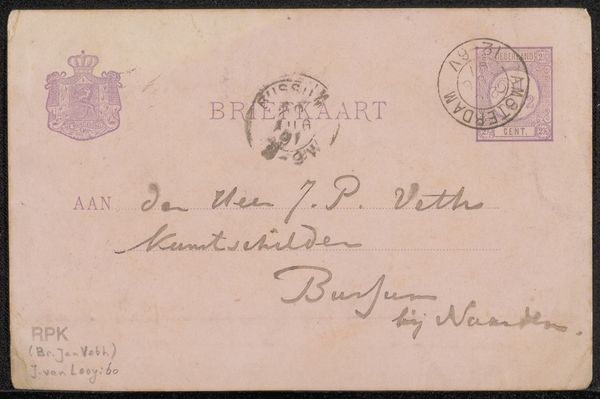 NEDERLAND
AMSTERDAM
BRIEFKAART
BUSSUM
AUG
91
CENT.
AAN den Heer J. P. Veth
Kunstschilder
Bussum
bij Naarden.
RPK
(Br. Jan Veth)
J. van Looy:60